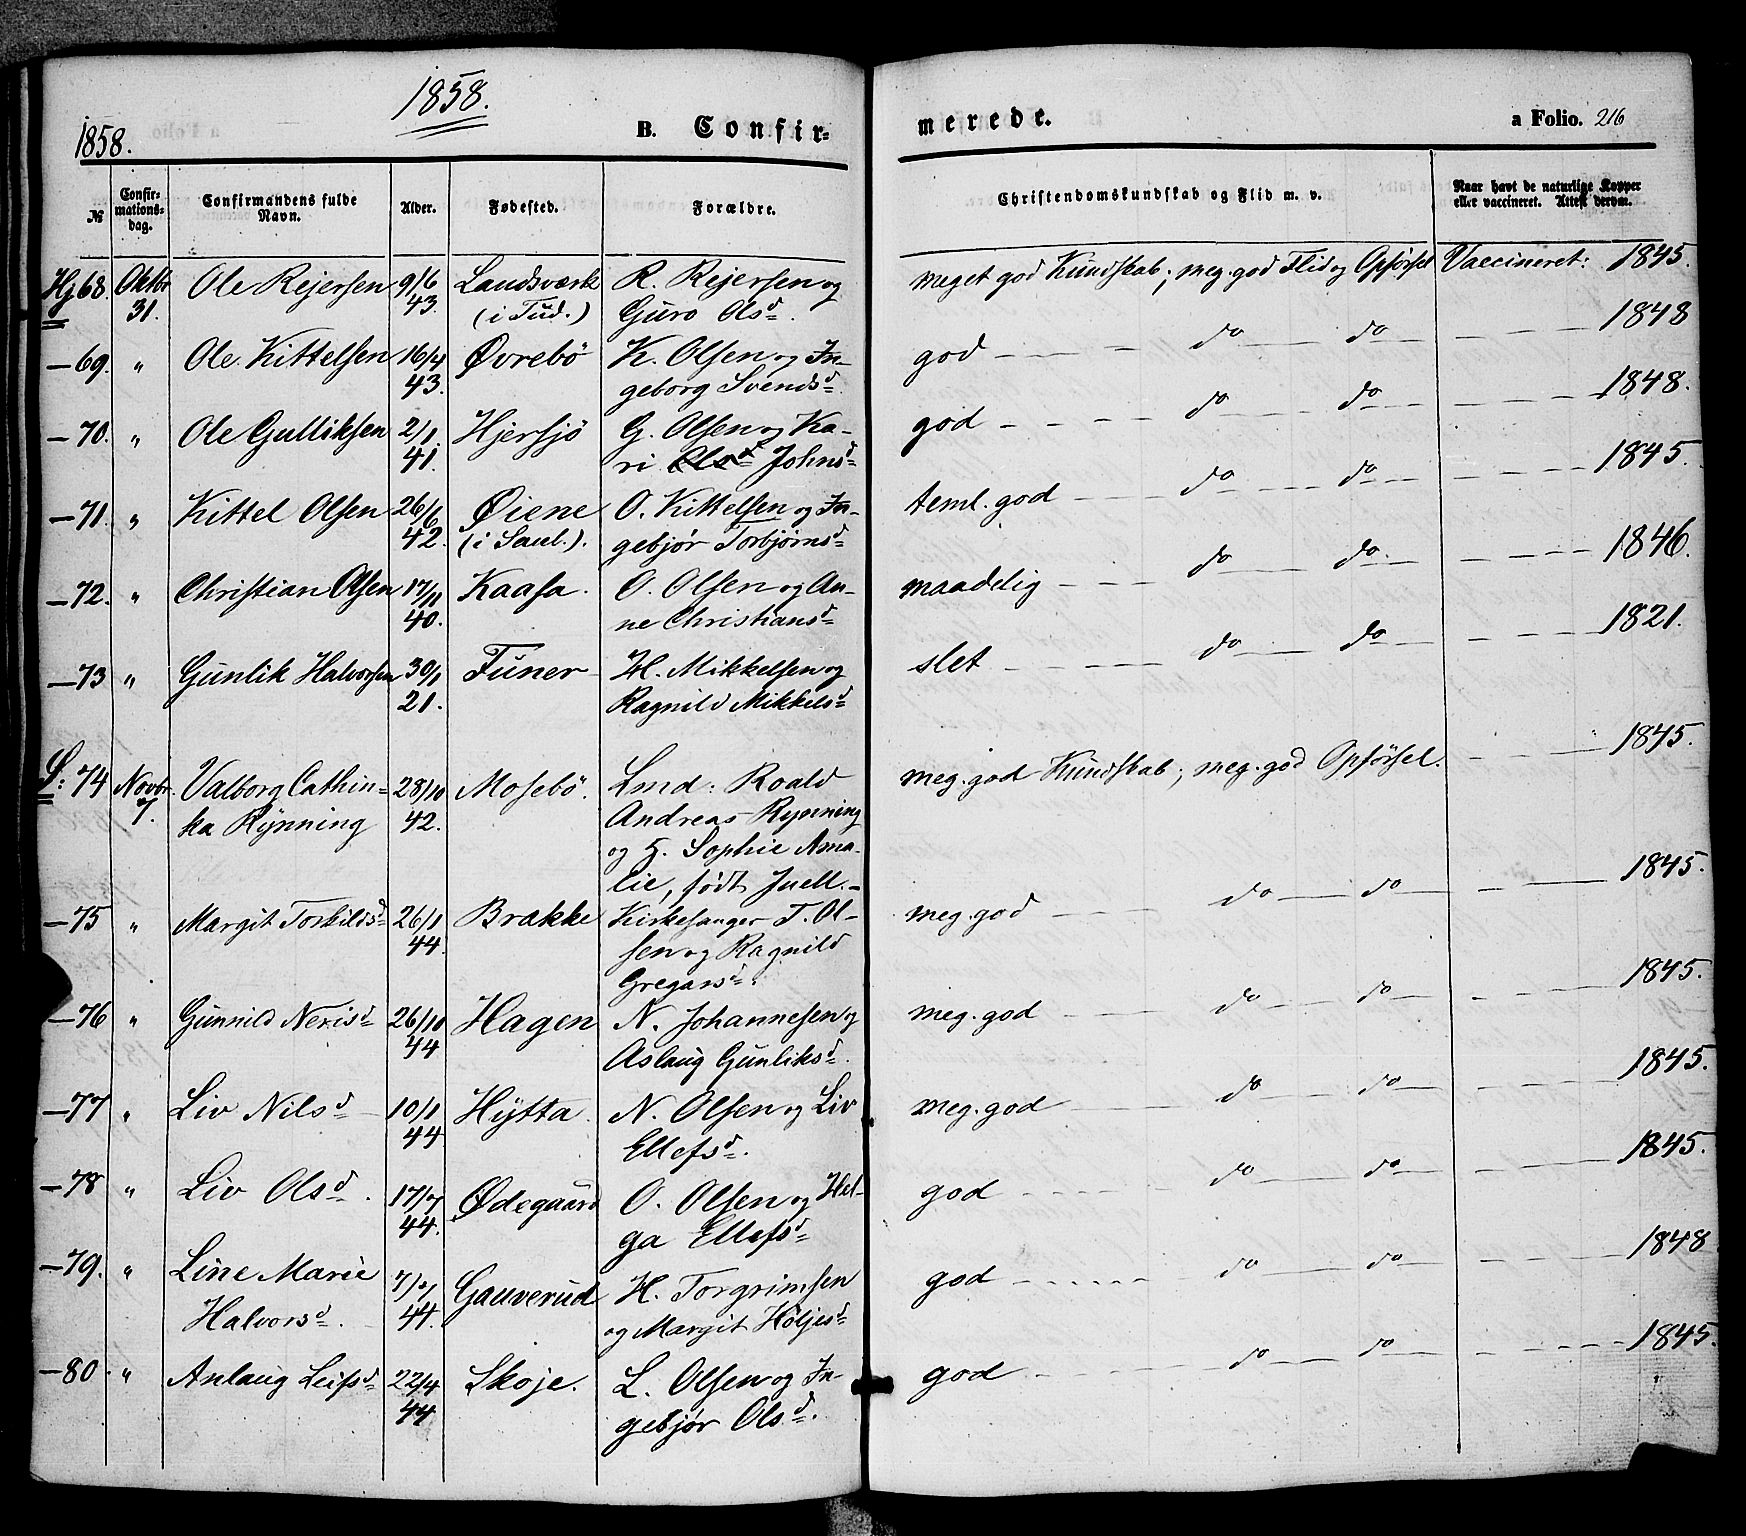 1858.
1858.
B. Confir-
merede.
a Folio. 216
№
Confir-
mations-
dag.
Confirmandens fulde
Navn.
Alder.
Fødested.
Forældre.
Christendomskundskab og Flid m. v.
Naar havt de naturlige Kopper
eller vaccineret. Attest derom.
Hj 68. Oktbr Ole Rejersen 9/6 Landsværk R. Rejersen og meget god Kundskab; meg. god Flid og Opförsel Vaccineret: 1845.
31. 43. (i Tud.) Guro Olsd.
—69. " Ole Kittelsen 16/4 Øvrebö K. Olsen og In- god do do 1848
43. geborg Svendsd.
—70. " Ole Gulliksen 2/1 Hjersjö G. Olsen og Ka- god do do 1848.
41. ri Olsd Johnsd
—71. " Kittel Olsen 26/6 Øiene O. Kittelsen og In- teml. god do do 1845.
42. (i Saul.). gebjør Torbjørnsd
—72. " Christian Olsen 17/11 Kaasa. O. Olsen og An- maadelig do do 1846.
40. ne Christiansd
—73 " Gunlik Halvorsen 30/1 Funer H. Mikkelsen og slet do do 1821.
21. Ragnild Mikkelsd
L: 74 Novbr. Valborg Cathin- 28/10 Mosebö. Lmd: Roald meg. god Kundskab; meg. god Opförsel. 1845.
7. ka Rynning 42. Andreas Rynning
og H. Sophie Ama-
lie, født Juell.
—75 " Margit Torkildsd 26/1 Brakke Kirkesanger T. Ol- meg. god do do 1845.
44. sen og Ragnild
Gregarsd.
—76 " Gunnild Nerisd 26/10 Hagen N. Johannesen og meg. god do do 1845.
44 Aslaug Gunliksd.
—77 " Liv Nilsd 10/1 Hytta. N. Olsen og Liv meg. god do do 1845.
44 Ellefsd.
—78 " Liv Olsd. 17/7 Ødegaard O. Olsen og Hel- god do do 1845.
44. ga Ellefsd
—79. " Line Marie 7/7 Gauverud H. Torgrimsen god do do 1848
Halvorsd. 44. og Margit Höljesd
—80. " Anlaug Leifsd 22/4 Skoje. L. Olsen og In- god do do 1845.
44 gebjør Olsd.